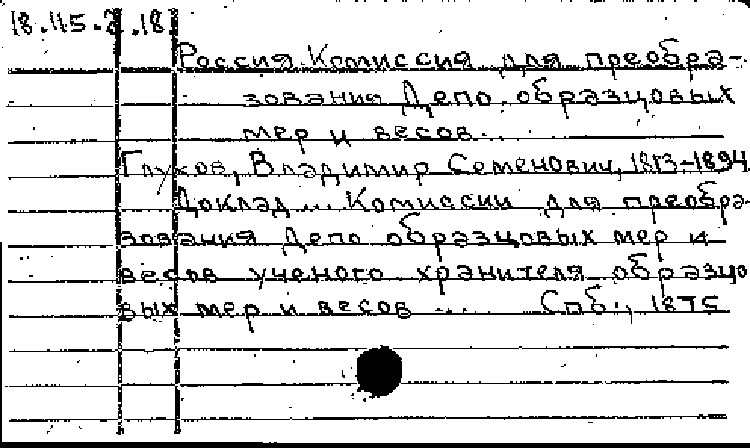 18.115.2.18
Россия. Комиссия для преобра-
зования Депо образцовых
мер и весов.
Глухов, Владимир Семенович, 1813-1894
Доклад ... Комиссии для преобра-
зования Депо образцовых мер и
весов ученого хранителя образцо
вых мер и весов ... Спб., 1875